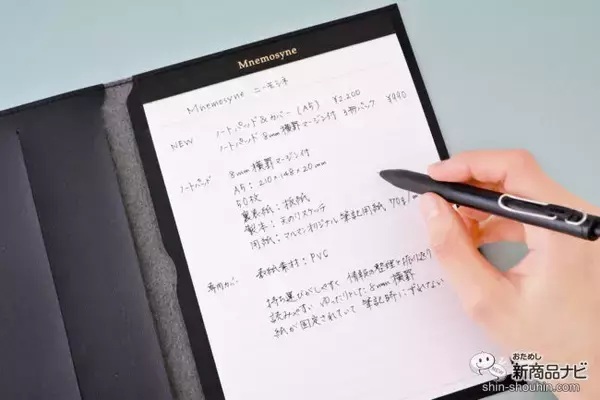 Mnemosyne
Mnemosyne ニーモシネ
NEW ノートパッド&カバー (A5) ¥2,200
ノートパッド 8mm横罫マージン付 3冊パック ¥990
ノートパッド 8mm横罫マージン付
A5: 210×148×20mm
50枚
裏表紙: 板紙
製本: 天のりスケッチ
用紙: マルマンオリジナル筆記用紙 70g/m
専用カバー 表紙素材: PVC
持ち運びがしやすく 情報の整理と
読みやすい ゆったりとした8mm横罫
紙が固定されていて 筆記時にずれない
おためし
新商品ナビ
shin-shouhin.com